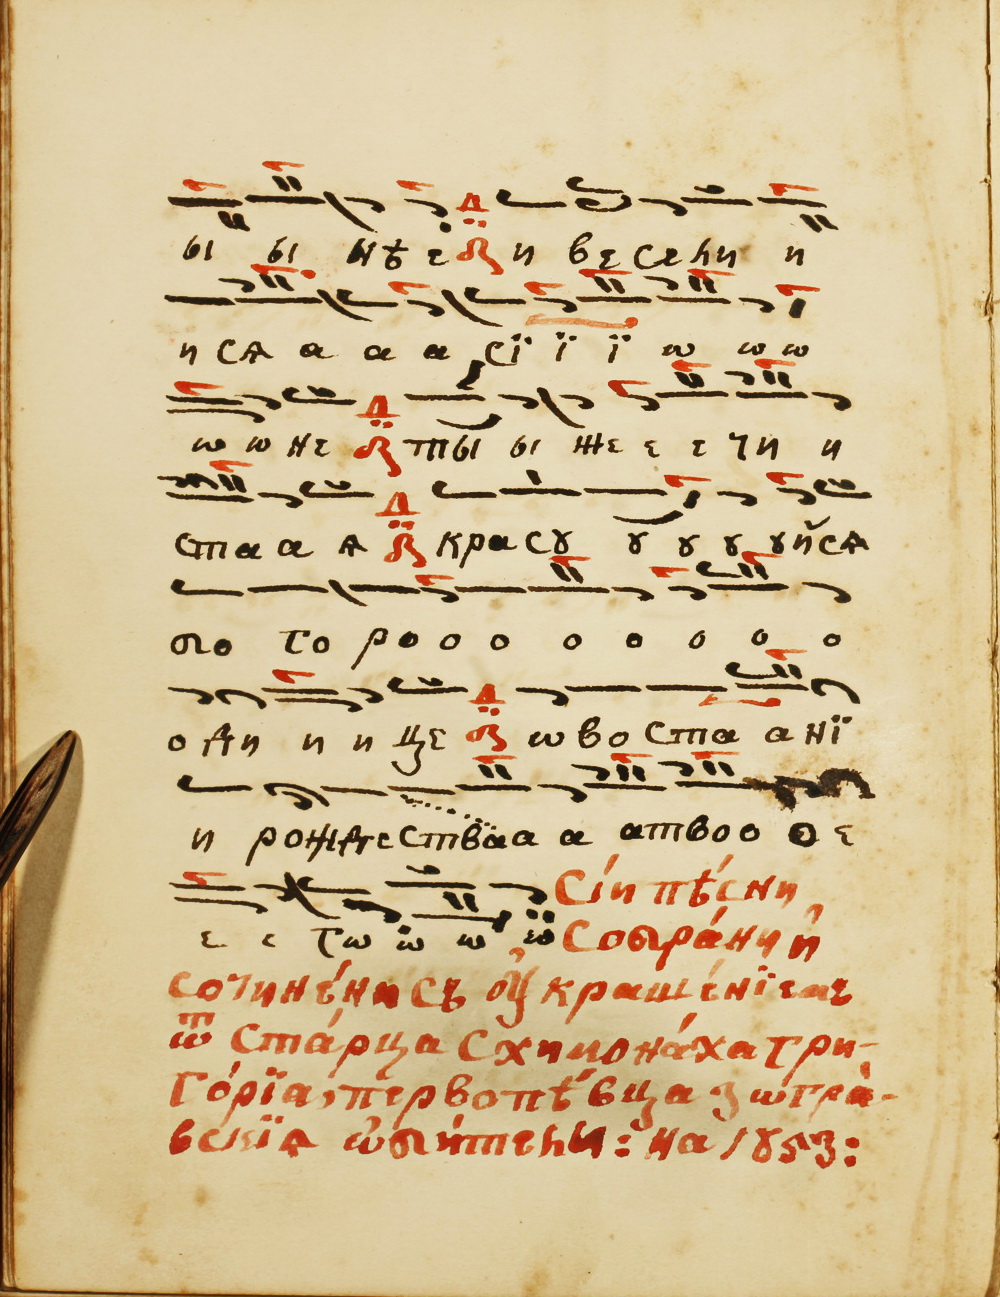 ы ы нѣ е и весели и
и ся а а а сї ї ї ѡ ѡ ѡ
ѡ ѡ не ты ы же е е чи и
стаа а я красꙋ ꙋ ꙋ ꙋ ꙋйся
бо го ро о о о о о о о
о ди и и це ѡ воста а нї
и рождества а а а твоо о е
е е гѡ ѡ ѡ ѡ Сі́и пѣ́сни
Собра́ни и҆
сочине́ни съ оу҆краше́нїемъ
ѿ ста́рца Схимона́ха гри-
го́рїа, первопѣ́вца зѡгра́-
вскїѧ ѡ҆би́тели: на 1853: